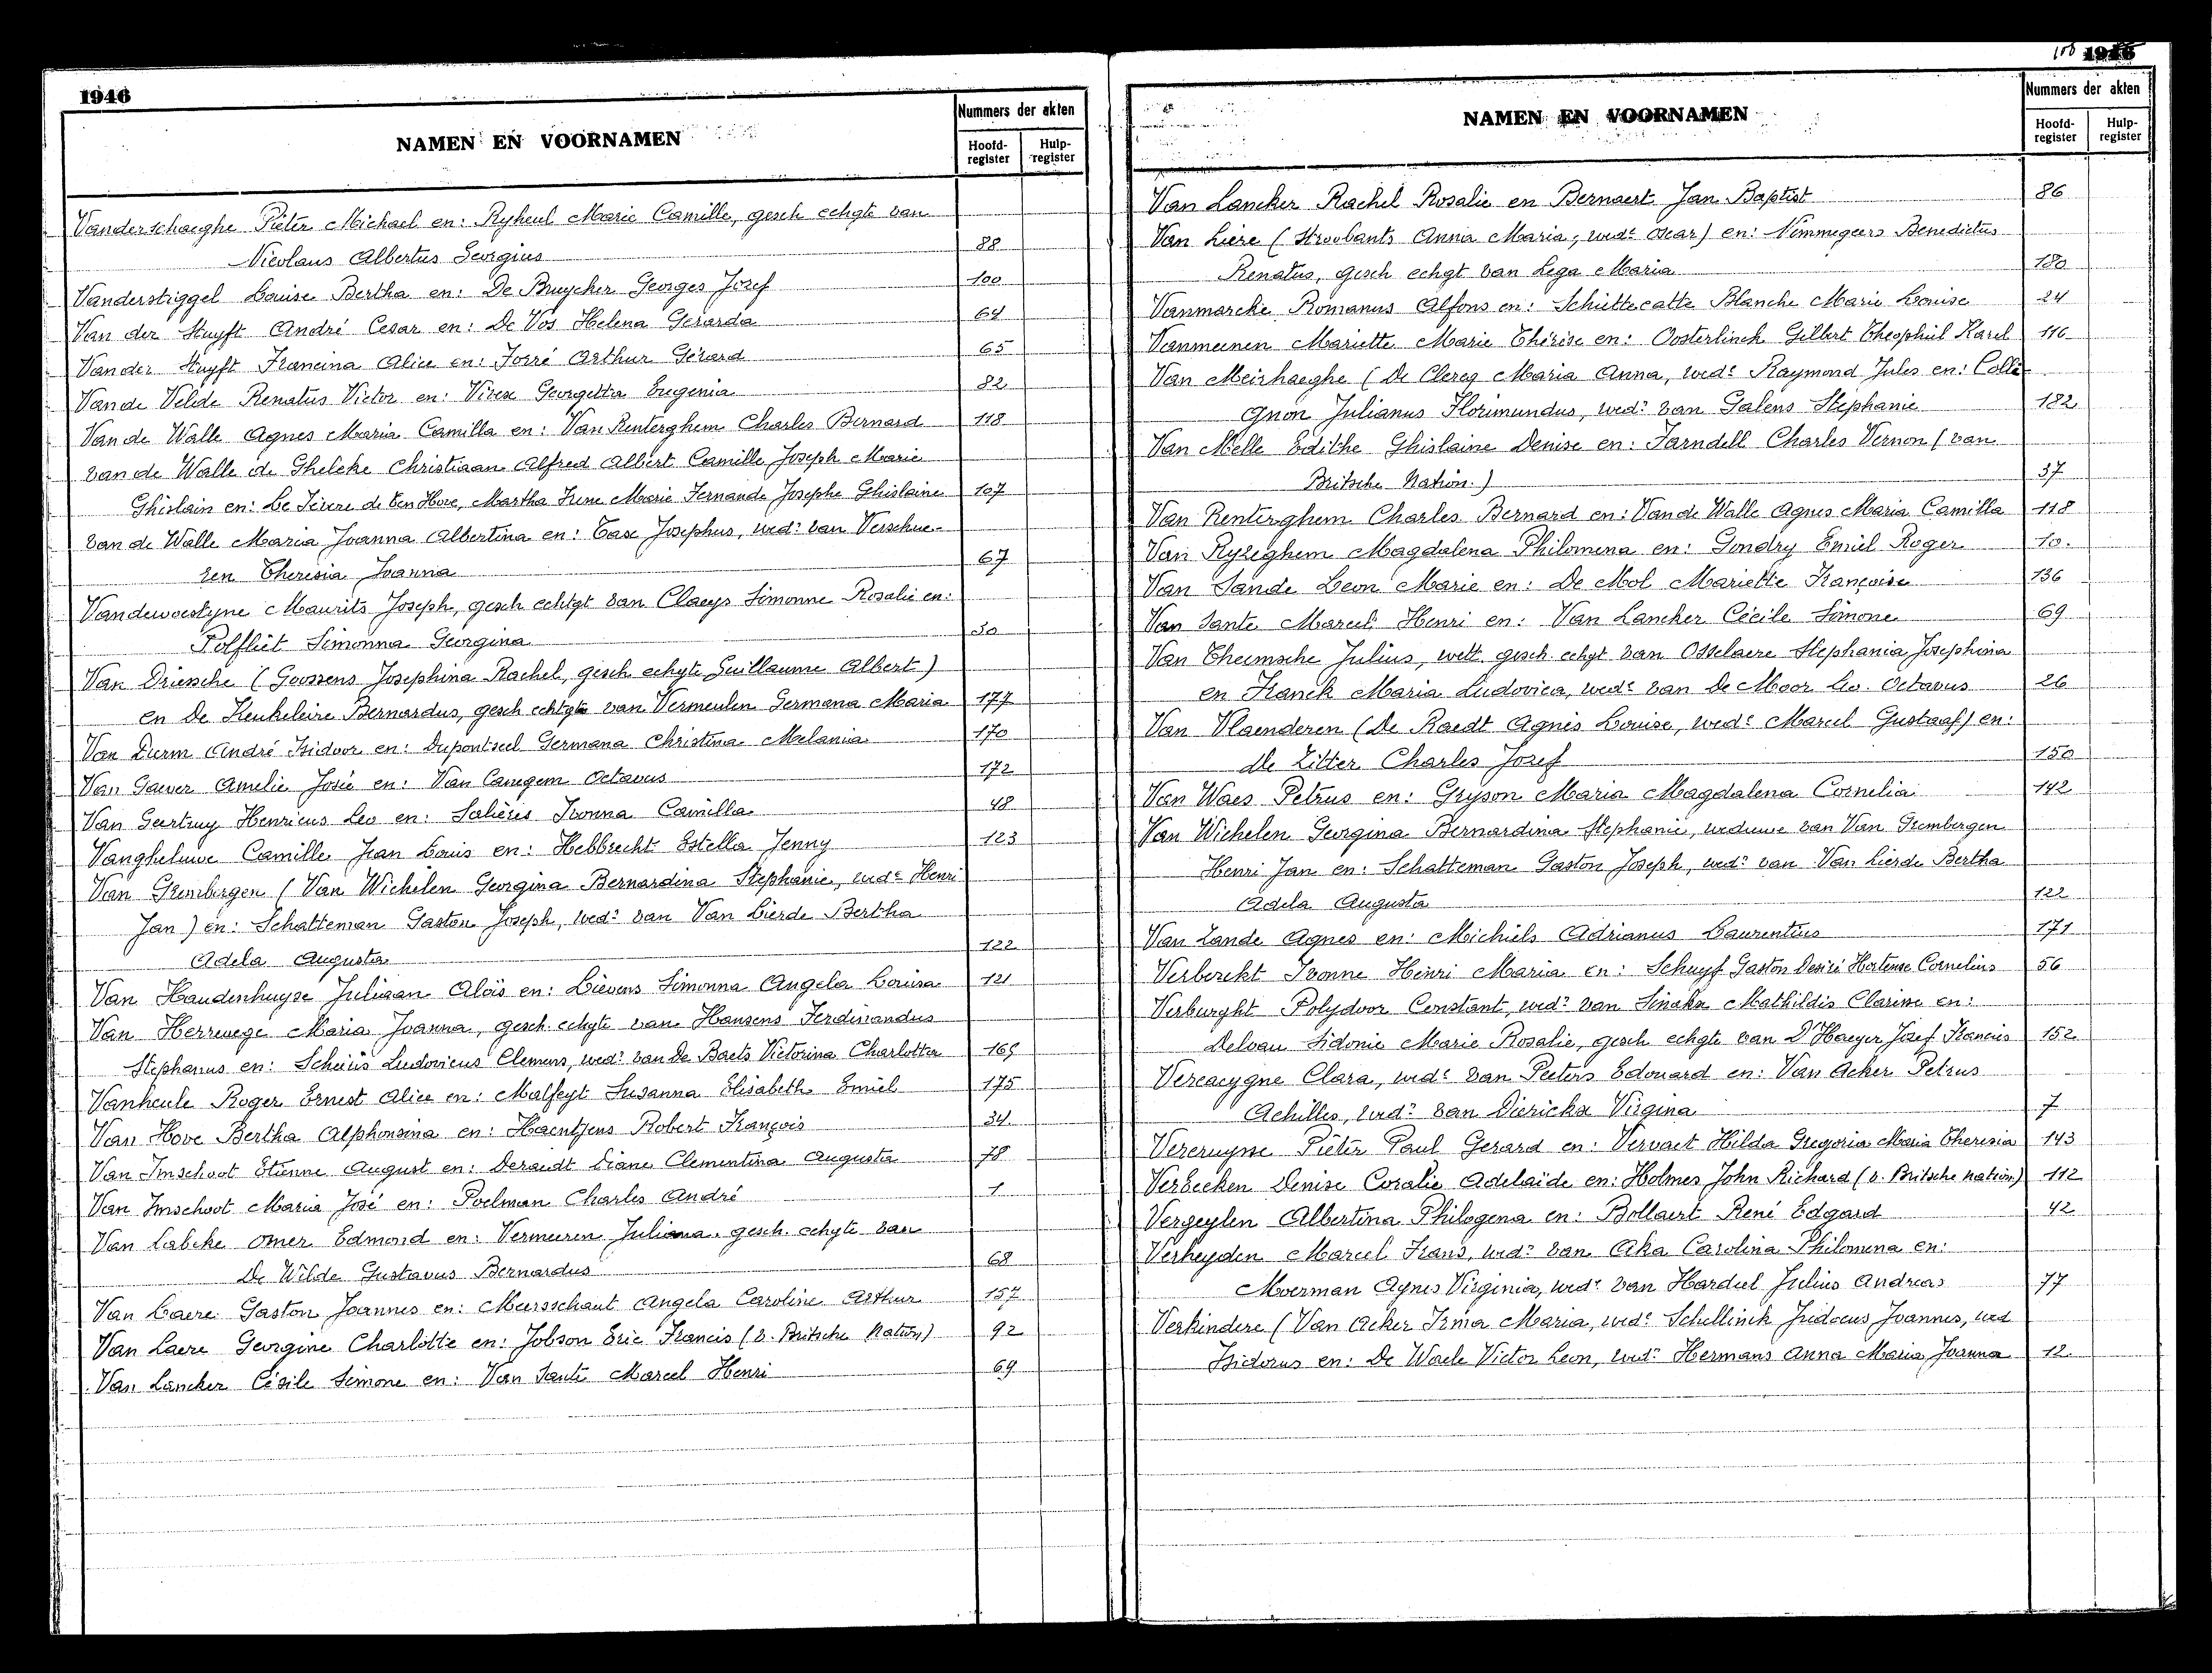 1946
NAMEN EN VOORNAMEN
Nummers der akten
Hoofd-register
Hulp-register
Vanderschaeghe Pieter Michael en: Ryheul Marie Camille, gesch echgte van
Nicolaus Albertus Georgius 88
Vanderstiggel Louise Bertha en: De Bruycker Georges Jozef 100
Van der Stuyft André Cesar en: De Vos Helena Gerarda 64
Van der Stuyft Francina Alice en: Jorré Arthur Gérard 65
Van de Velde Renatus Victor en: Georgetta Eugenia 82
Van de Walle Agnes Maria Camilla en: Van Renterghem Charles Bernard 118
van de Walle de Ghelcke Christiaan Alfred Albert Camille Joseph Marie
Ghislain en: de ten Hove, Martha Irene Marie Fernande Josephe Ghislaine 107
van de Walle Maria Joanna Albertina en: Tax Josephus, wedr van Verschue-
ren Theresia Joanna 67
Vandewoestyne Maurits Joseph, gesch echtgt van Claeys Simonne Rosalie en:
Polfliet Simonna Georgina 30
Van Driessche (Goossens Josephina Rachel, gesch echgte Guillaume Albert)
en De Keukeleire Bernardus, gesch echtgte van Vermeulen Germana Maria 177
Van Durm André Isidoor en: Duponteel Germana Christina Melania 170
Van Gaever Amelie Josée en: Van Canegem Octavus 172
Van Geertruy Henricus Leo en: Salières Ivonna Camilla 48
Vangheluwe Camille Jean Louis en: Hebbrecht Estella Jenny 123
Van Grembergen (Van Wichelen Georgina Bernardina Stephanie, wede Henri
Jan) en: Schatteman Gaston Joseph, wedr van Van Lierde Bertha
Adela Augusta 122
Van Haudenhuyse Juliaan Aloïs en: Lievens Simonna Angela Louisa 121
Van Herrewege Maria Joanna, gesch. echgte van Hansens Ferdinandus
Stephanus en: Scheiris Ludovicus Clemens, wedr van De Baets Victorina Charlotta 165
Vanheule Roger Ernest Alice en: Malfeyt Susanna Elisabeth Emiel 175
Van Hove Bertha Alphonsina en: Haentjens Robert François 34
Van Imschoot Etienne August en: Deraedt Diane Clementina Augusta 78
Van Imschoot Maria José en: Poelman Charles André 1
Van Labeke Omer Edmond en: Vermeeren Juliana, gesch. echgte van
De Wilde Gustavus Bernardus 68
Van Laere Gaston Joannes en: Meersschaut Angela Caroline Arthur 157
Van Laere Georgine Charlotte en: Jobson Eric Francis (v. Britsche Nation) 92
Van Lancker Cécile Simone en: Van Sante Marcel Henri 69
1946
NAMEN EN VOORNAMEN
Nummers der akten
Hoofd-register
Hulp-register
Van Lancker Rachel Rosalie en Bernaert Jan Baptist 86
Van Liere (Stroobants Anna Maria, wede Oscar) en: Nimmegeers Benedictus
Renatus, gesch echgt van Lega Maria 180
Vanmarcke Romanus Alfons en: Schuttecatte Blanche Marie Louise 24
Vanmeenen Mariette Marie Thérèse en: Oosterlinck Gilbert Theophiel Karel 116
Van Meirhaeghe (De Clercq Maria Anna, wede Raymond Jules en: Colli-
gnon Julianus Florimundus, wedr van Galens Stephanie 182
Van Melle Edithe Ghislaine Denise en: Farndell Charles Vernon (van
Britsche Nation.) 37
Van Renterghem Charles Bernard en: Van de Walle Agnes Maria Camilla 118
Van Ryseghem Magdalena Philomena en: Gondry Emiel Roger 10.
Van Sande Leon Marie en: De Mol Mariette Françoise 136
Van Sante Marcel Henri en: Van Lancker Cécile Simone 69
Van Theemsche Julius, wett. gesch. echgt van Osselaere Stephania Josephina
en Franck Maria Ludovica, wede van De Moor Leo. Octavus 26
Van Vlaenderen (De Raedt Agnès Louise, wede Marcel Gustaaf) en:
De Zitter Charles Jozef 150
Van Waes Petrus en: Gryson Maria Magdalena Cornelia 142
Van Wichelen Georgina Bernardina Stephanie, weduwe van Van Grembergen
Henri Jan en: Schatteman Gaston Joseph, wedr van Van Lierde Bertha
Adela Augusta 122
Van Zande Agnes en: Michiels Adrianus Laurentius 171
Verberckt Ivonne Henri Maria en: Schuyf Gaston Desiré Hortense Cornelius 56
Verburght Polydoor Constant, wedr van Mathildis Clarisse en:
Delvau Sidonie Marie Rosalie, gesch echgte van D'Haeyer Jozef Francis 152
Vercaeygne Clara, wede van Peeters Edouard en: Van Acker Petrus
Achilles, wedr van Dierickx Virgina 7
Vercruysse Pieter Paul Gerard en: Vervaet Hilda Gregoria Maria Theresia 143
Verbeeken Denise Coralie Adelaïde en: Holmes John Richard (v. Britsche nation) 112
Vergeylen Albertina Philogena en: Bollaert René Edgard 42
Verheyden Marcel Frans, wedr van Aka Carolina Philomena en:
Moerman Agnes Virginia, wede van Hardeel Julius Andreas 77
Verkindere (Van Acker Irma Maria, wede Schellinck Judocus Joannes, wed
Isidorus en: De Waele Victor Leon, wedr Hermans Anna Maria Joanna 12.